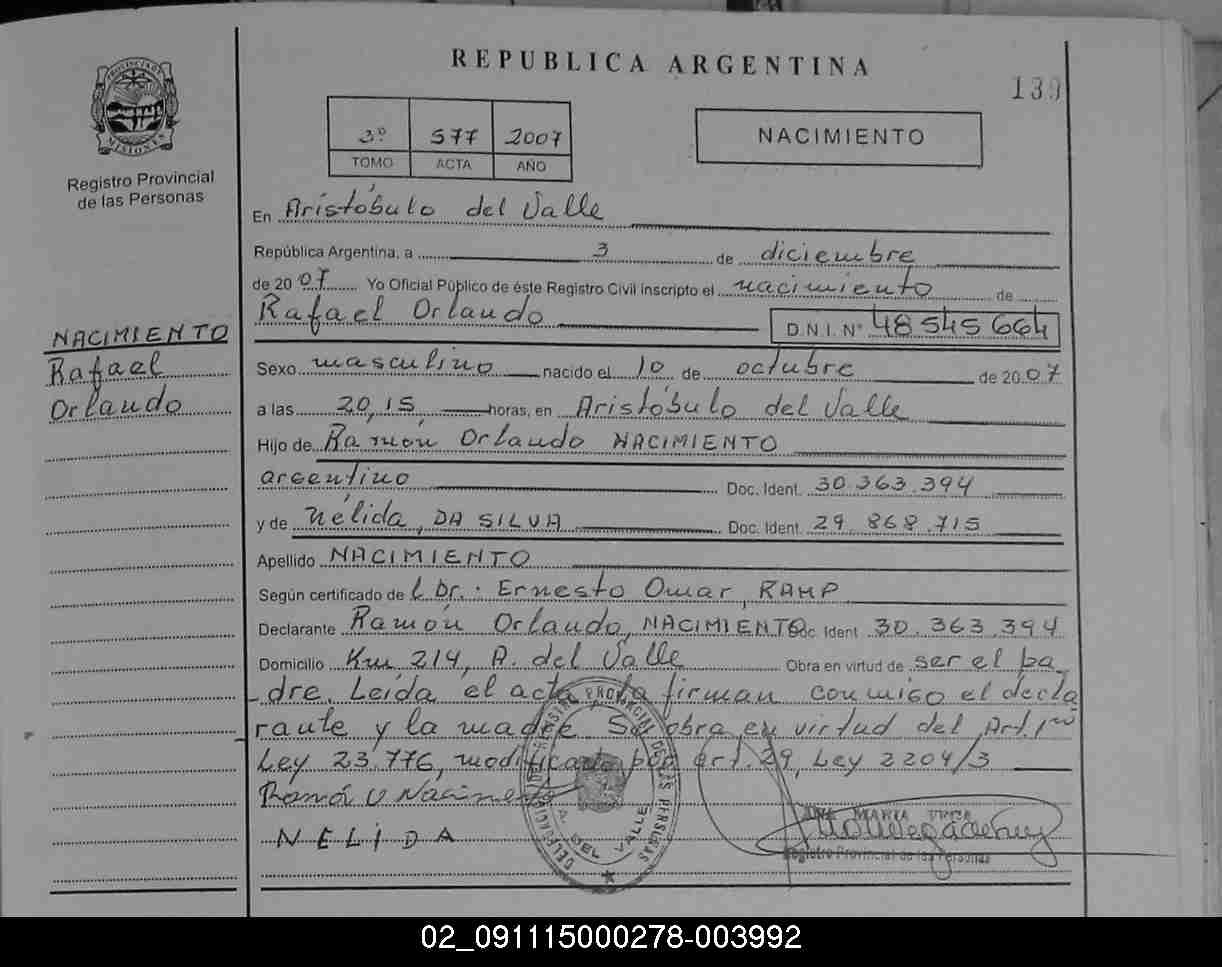 REPUBLICA ARGENTINA
139
PROVINCIA DE MISIONES
Registro Provincial
de las Personas
3º 577 2007
TOMO ACTA AÑO
NACIMIENTO
En Aristóbulo del Valle
República Argentina, a 3 de diciembre
de 2007 Yo Oficial Público de éste Registro Civil inscripto el nacimiento de
Rafael Orlando D.N.I. Nº 48545664
NACIMIENTO
Rafael
Orlando
Sexo masculino nacido el 10 de octubre de 2007
a las 20,15 horas, en Aristóbulo del Valle
Hijo de Ramón Orlando NACIMIENTO
argentino Doc. Ident. 30.363.394
y de Nélida, DA SILVA Doc. Ident. 29.868.715
Apellido NACIMIENTO
Según certificado de l Dr.: Ernesto Omar, RAMP
Declarante Ramón Orlando, NACIMIENTO Doc. Ident 30.363.394
Domicilio Km 214, A. del Valle Obra en virtud de ser el pa
dre. Leída el acta, la firman conmigo el decla
rante y la madre. Se obra en virtud del Art. 1ro
Ley 23.776, modificado por art. 29, Ley 2204/3
Ramón O Nacimiento
NELIDA
DELEGACION DEL REGISTRO PROVINCIAL DE LAS PERSONAS
A. DEL VALLE
ANA MARIA
Registro Provincial de las Personas
02_091115000278-003992